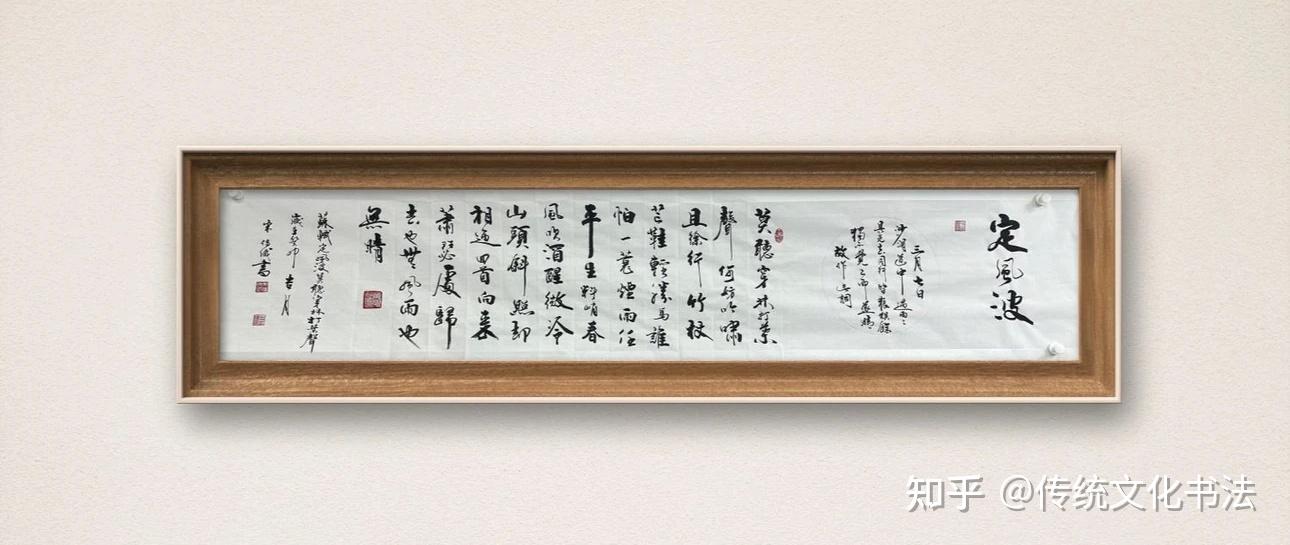 定風波
三月七日
沙湖道中遇雨雨
具先去同行皆狼狽餘
獨不覺已而遂晴
故作此詞
莫聽穿林打葉
聲何妨吟嘯
且徐行竹杖
芒鞋輕勝馬誰
怕一蓑煙雨任
平生料峭春
風吹酒醒微冷
山頭斜照却
相迎回首向來
蕭瑟處歸
去也無風雨也
無晴
蘇軾定風波莫聽穿林打葉聲
歲在癸卯 吉月
宋 書
知乎 @传统文化书法